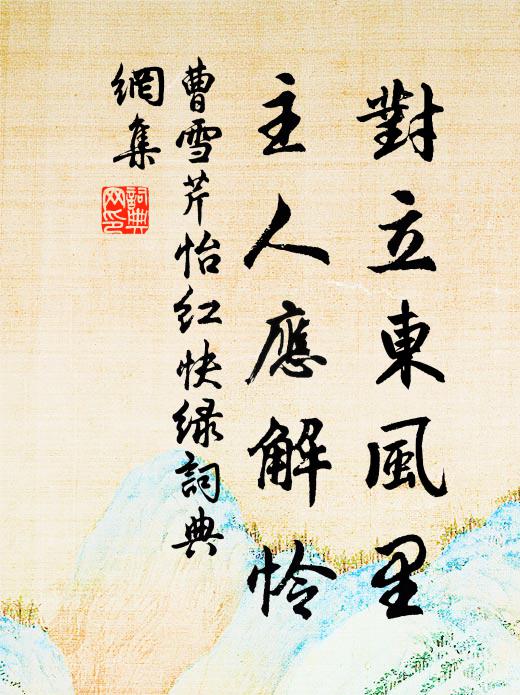 對立東風里
主人應解怜
曹雪芹怡红快绿詞典
網集
詞典网印